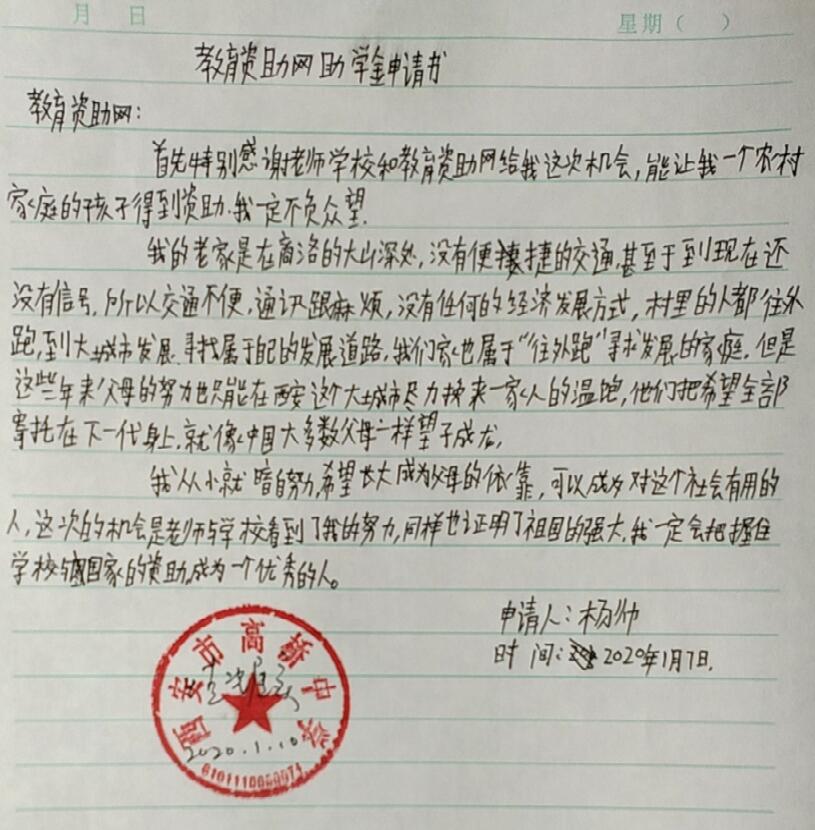 月 日 星期（ ）
教育资助网助学金申请书
教育资助网：
首先特别感谢老师学校和教育资助网给我这次机会，能让我一个农村
家庭的孩子得到资助.我一定不负众望.
我的老家是在商洛的大山深处，没有便捷的交通，甚至于到现在还
没有信号，所以交通不便，通讯跟麻烦，没有任何的经济发展方式，村里的人都往外
跑，到大城市发展.寻找属于自己的发展道路，我们家也属于“往外跑”寻求发展的家庭，但是
这些年来父母的努力也只能在西安这个大城市尽力换来一家人的温饱，他们把希望全部
寄托在下一代身上，就像中国大多数父母一样望子成龙，
我从小就暗自努力，希望长大成为父母的依靠，可以成为对这个社会有用的
人，这次的机会是老师与学校看到了我的努力，同样也证明了祖国的强大，我一定会把握住
学校与国家的资助，成为一个优秀的人。
申请人：杨帅
时间：2020年1月7日.
西安市高桥中学
2020.1.10